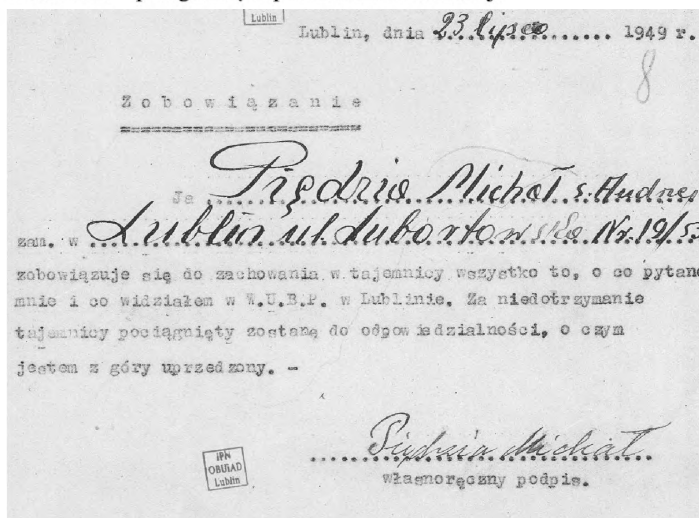 Lublin
Lublin, dnia 23 lipca 1949 r.
8
Zobowiązanie
Ja Piędzia Michał s.
zam. w Lublin ul Lubartowska Nr. 19/53
zobowiązuje się do zachowania w tajemnicy wszystko to, o co pytano
mnie i co widziałem w W.U.B.P. w Lublinie. Za niedotrzymanie
tajemnicy pociągnięty zostanę do odpowiedzialności, o czym
jestem z góry uprzedzony. -
Piędzia Michał
własnoręczny podpis.
IPN
OBUiAD
Lublin